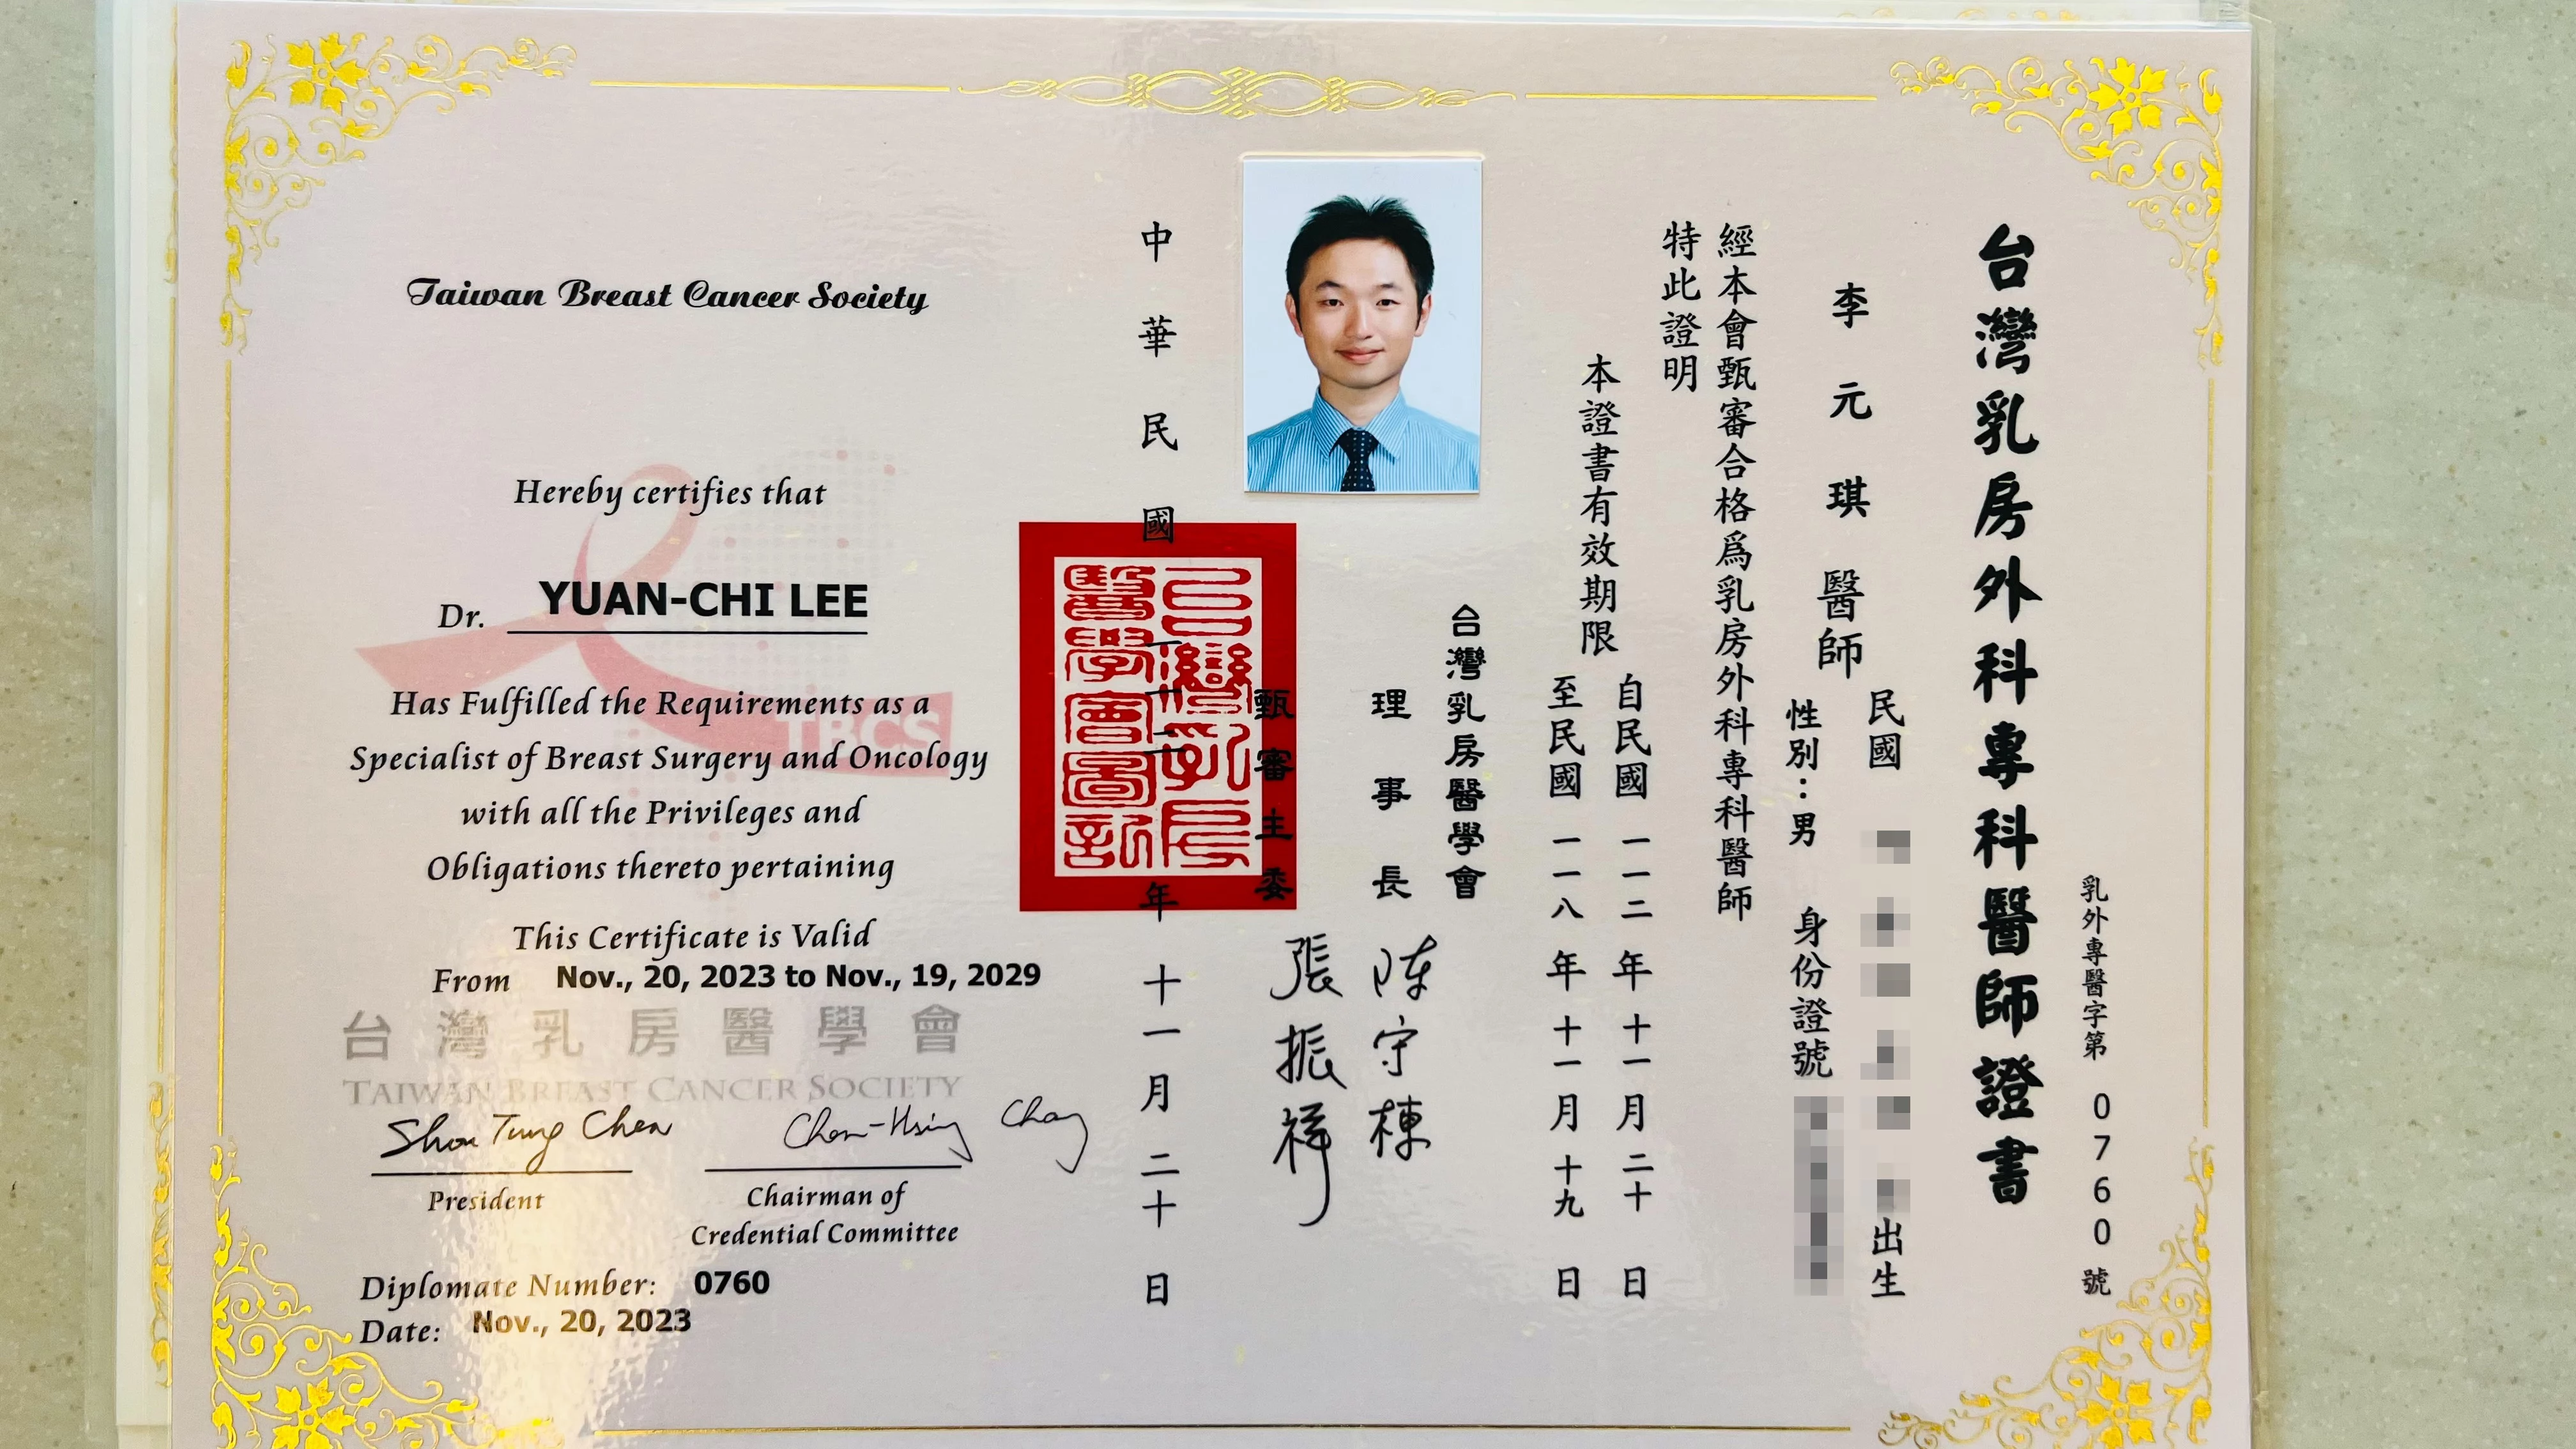 台灣乳房外科專科醫師證書
乳外專醫字第 0760 號
李元琪醫師
民國
出生
性別：男 身份證號
經本會甄審合格為乳房外科專科醫師
特此證明
本證書有效期限
自民國一一二年十一月二十日
至民國一一八年十一月十九日
台灣乳房醫學會
理事長
陳守棟
甄審主委
張振祥
中華民國一一二年十一月二十日
台灣乳房
醫學會圖記
Taiwan Breast Cancer Society
Hereby certifies that
Dr. YUAN-CHI LEE
Has Fulfilled the Requirements as a
TBCS
Specialist of Breast Surgery and Oncology
with all the Privileges and
Obligations thereto pertaining
This Certificate is Valid
From Nov., 20, 2023 to Nov., 19, 2029
台灣乳房醫學會
TAIWAN BREAST CANCER SOCIETY
Shou Tung Chen
Chen-Hsiang Chang
President
Chairman of
Credential Committee
Diplomate Number: 0760
Date: Nov., 20, 2023